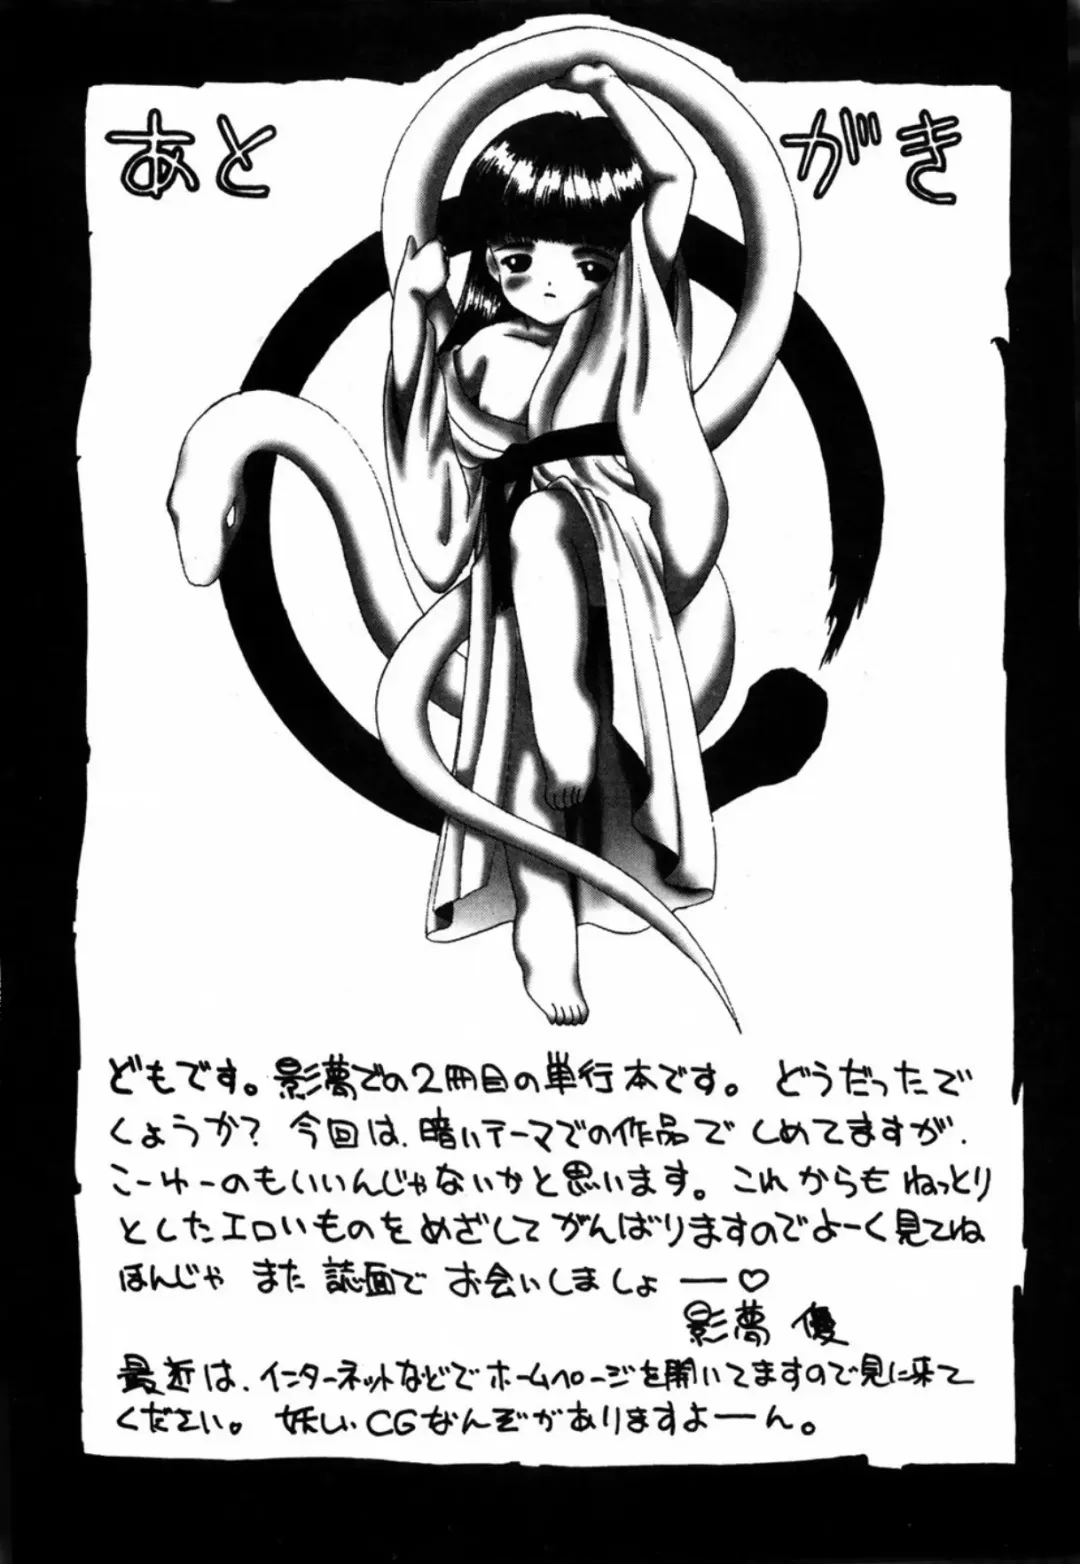 あとがき
どもです。影夢での2冊目の単行本です。 どうだったで
しょうか? 今回は、暗いテーマでの作品でしめてますが、
こーゆーのもいいんじゃないかと思います。これからもねっとり
としたエロいものをめざしてがんばりますのでよーく見てね
ほんじゃ また 誌面で お会いしましょ ー♡
影夢 優
最近は、インターネットなどでホームページを開いてますので見に来て
ください。 妖しいCGなんぞがありますよーん。